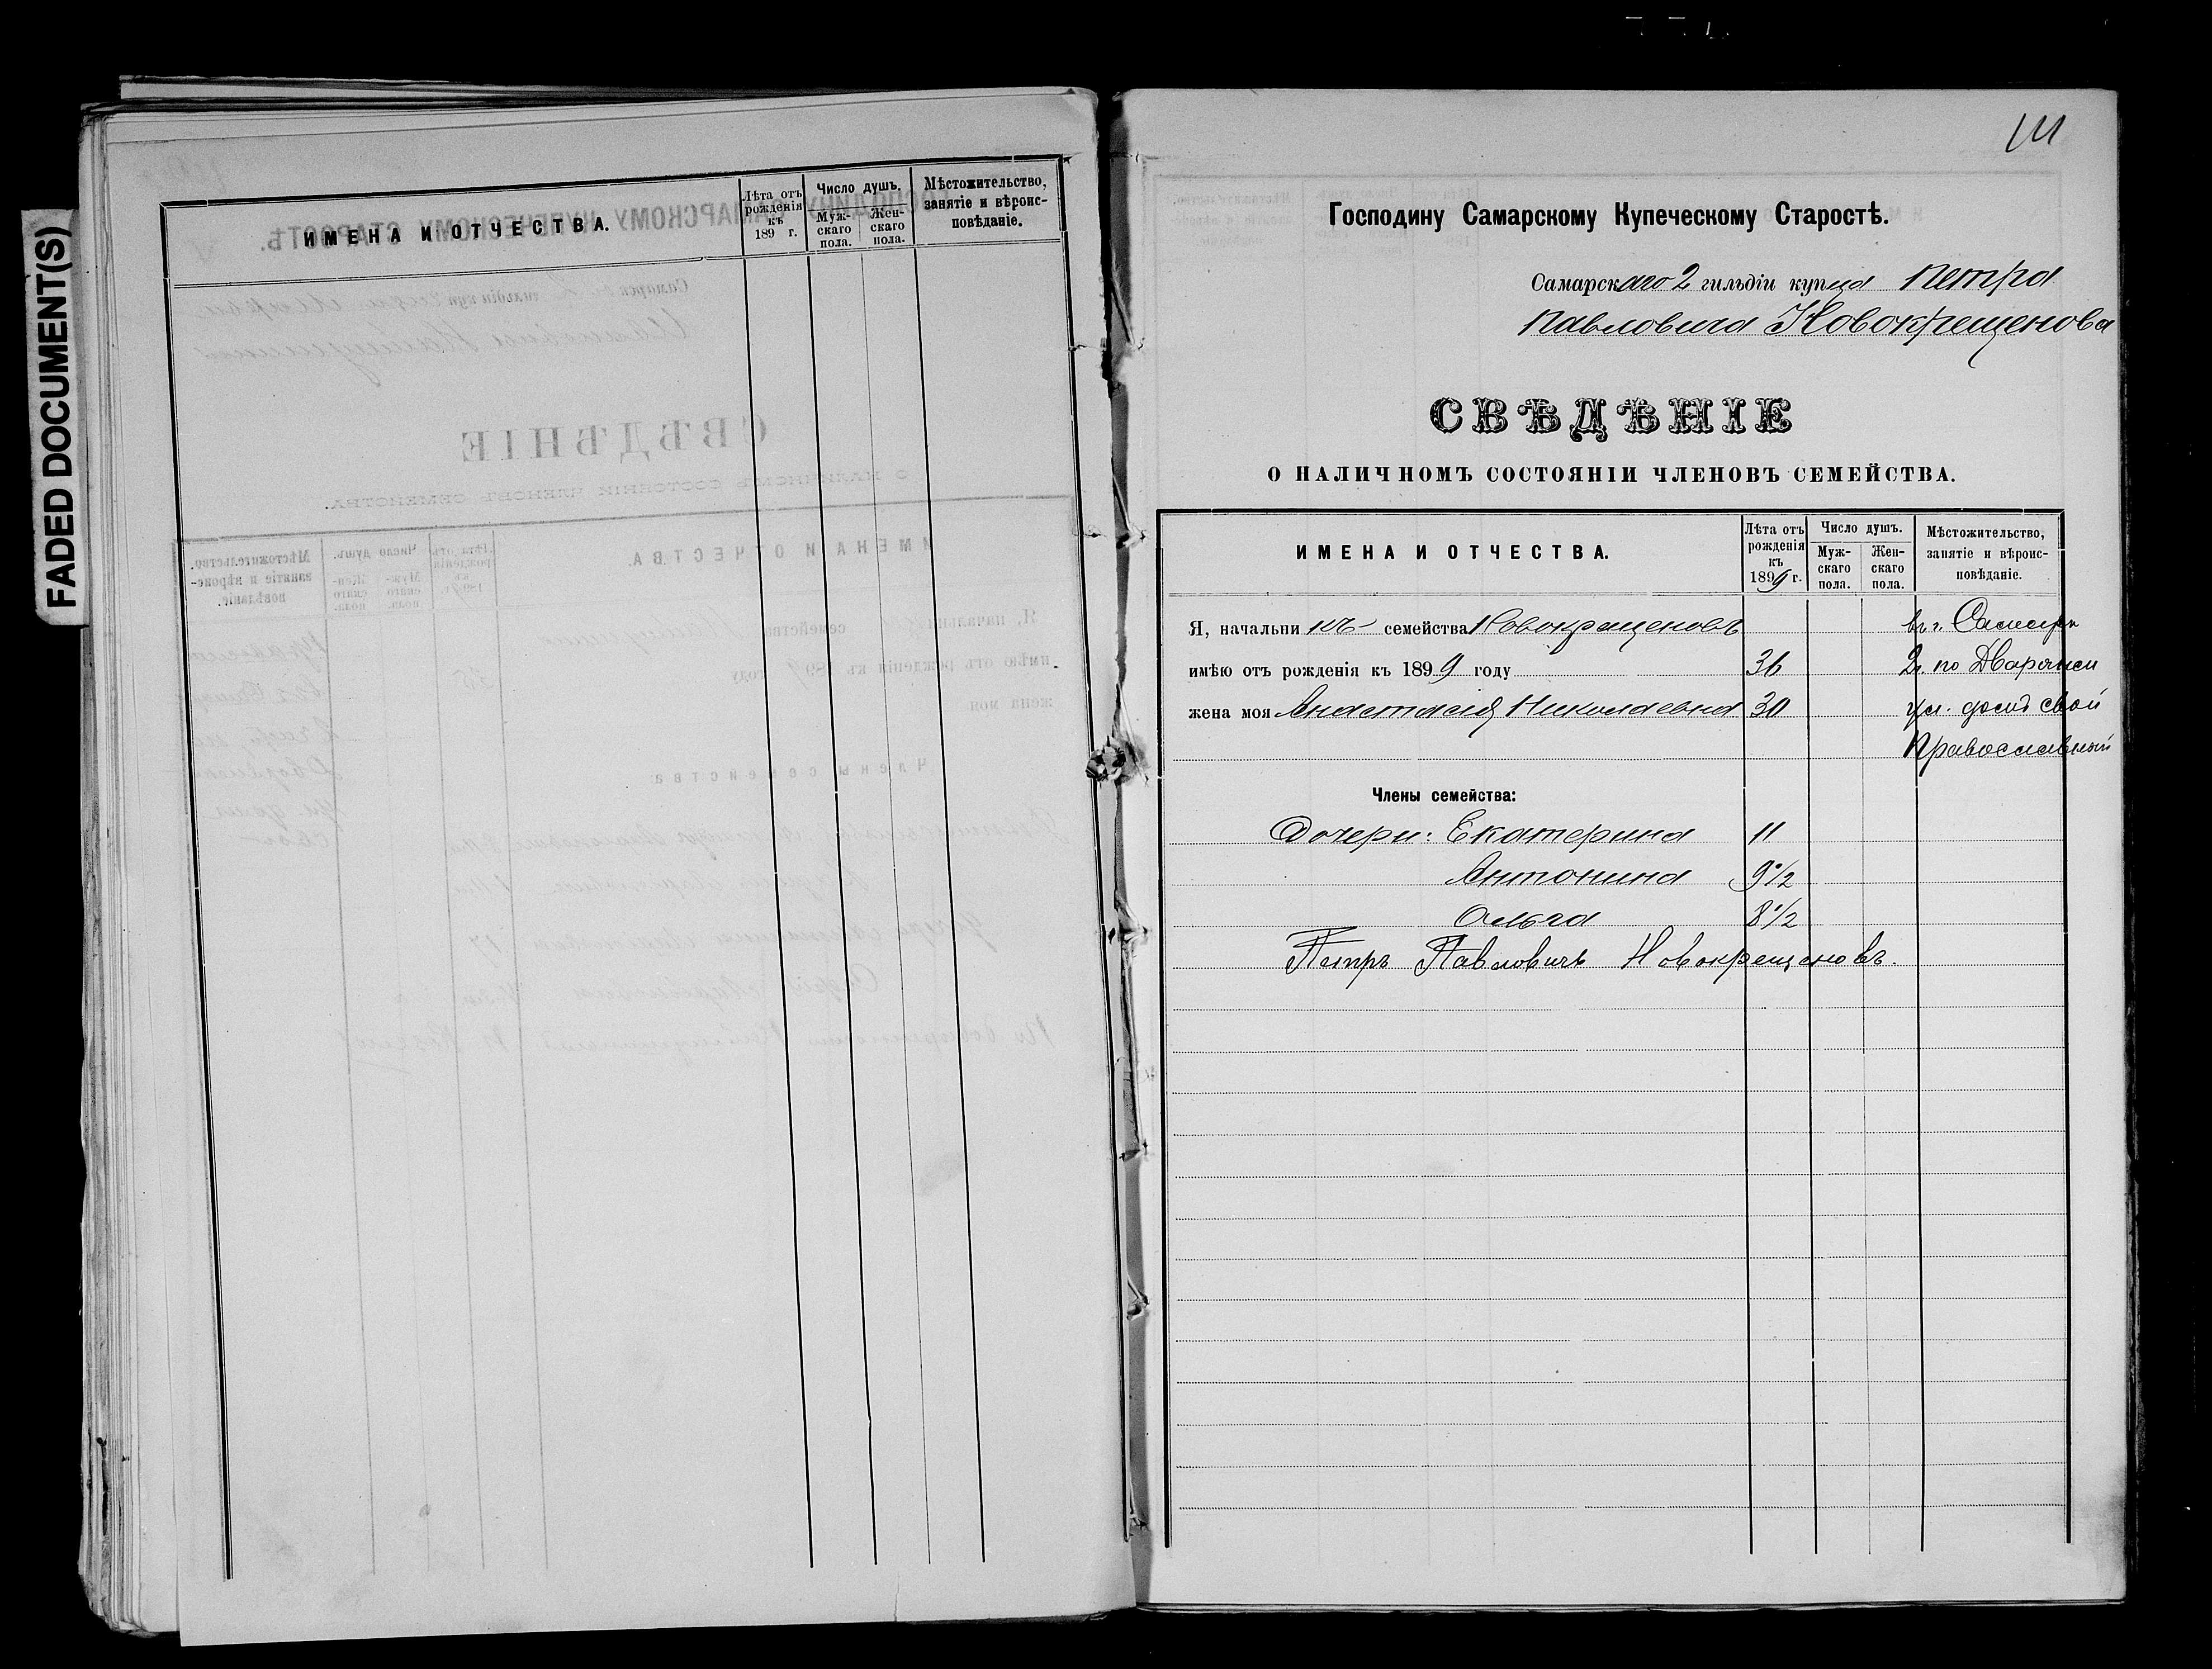 FADED DOCUMENT(S)
ИМЕНА И ОТЧЕСТВА.
Лѣта отъ рожденія къ 189 г.
Число душъ.
Мужскаго пола.
Женскаго пола.
Мѣстожительство, занятіе и вѣроисповѣданіе.
111
Господину Самарскому Купеческому Старостѣ.
Самарскаго 2 гильдіи купца Петра
Павловича Новокрещенова
СВѢДѢНІЕ
О НАЛИЧНОМЪ СОСТОЯНІИ ЧЛЕНОВЪ СЕМЕЙСТВА.
ИМЕНА И ОТЧЕСТВА.
Лѣта отъ
рожденія
къ
1899 г.
Число душъ.
Муж-
скаго
пола.
Жен-
скаго
пола.
Мѣстожительство,
занятіе и вѣроис-
повѣданіе.
Я, начальникъ семейства Новокрещеновъ въ г. Самарѣ
имѣю отъ рожденія къ 1899 году 36 по Дворянск
жена моя Анастасія Николаевна 30 ул. домъ свой
Православный
Члены семейства:
Дочери: Екатерина 11
Антонина 9 1/2
Ольга 8 1/2
Петръ Павловичъ Новокрещеновъ.